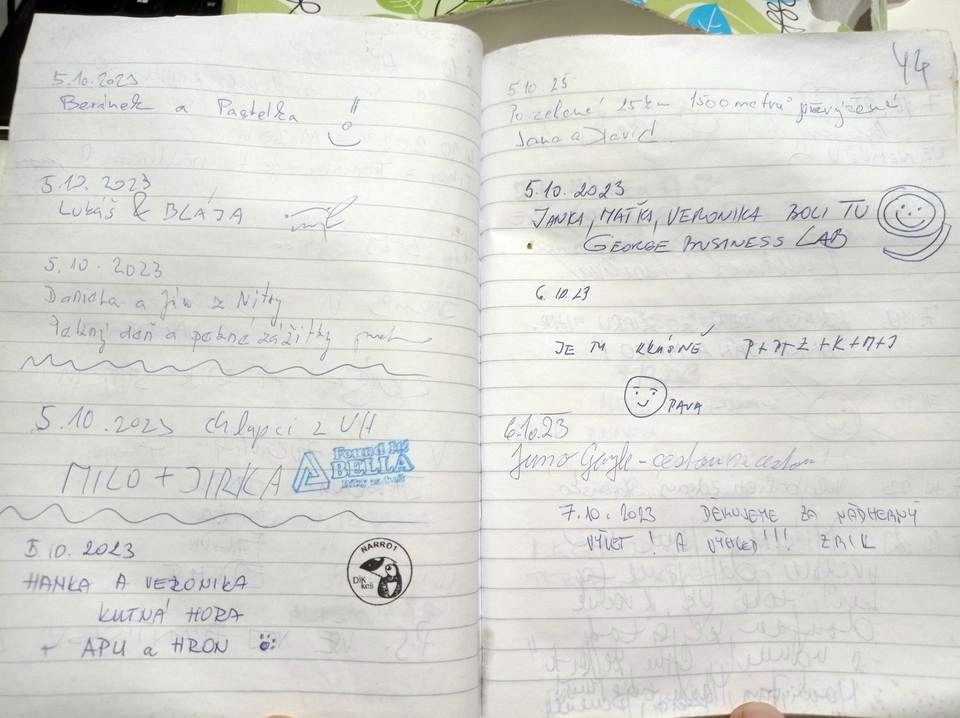 5.10.2023
Beránek a Pastelka !!
5.10.2023
Lukáš & BLÁJA
5.10.2023
Daniela a Jín z Nitry
Pekný deň a pekné zážitky
5.10.2023 chlapci z UH
MILO + JIRKA
Found by
BELLA
5 10. 2023
NARRO1
Dík
keš
HANKA A VERONIKA
KUTNÁ HORA
+ APU a HRON
44
5 10 23
Po zelené 15km 1500metrů převýšení
Jana a David.
5.10.2023
JANKA, MAŤKA, VERONIKA BOLI TU
GEORGE BUSINESS LAB
6.10 23
JE TU KRÁSNĚ P+M+Z+K+M+J
PAVA
6.10.23
7.10.2023 DĚKUJEME ZA NÁDHERNÝ
VÝLET! A VÝHLED!!!